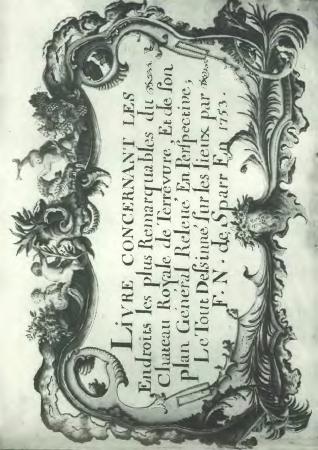 LIVRE CONCERNANT LES
Endroits les plus Remarquables du
Chateau Royale de Terrevure, Et de son
Plan Général Relevé En Perspective;
Le Tout Dessinné sur les lieux par
F. N. de Sparr En 1753.